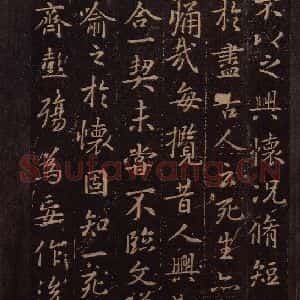 不以之興懷況脩短
於盡古人云死生亦
痛哉每攬昔人興
合一契未嘗不臨文
喻之於懷固知一死
齊彭殤為妄作後
Shufawang.CN